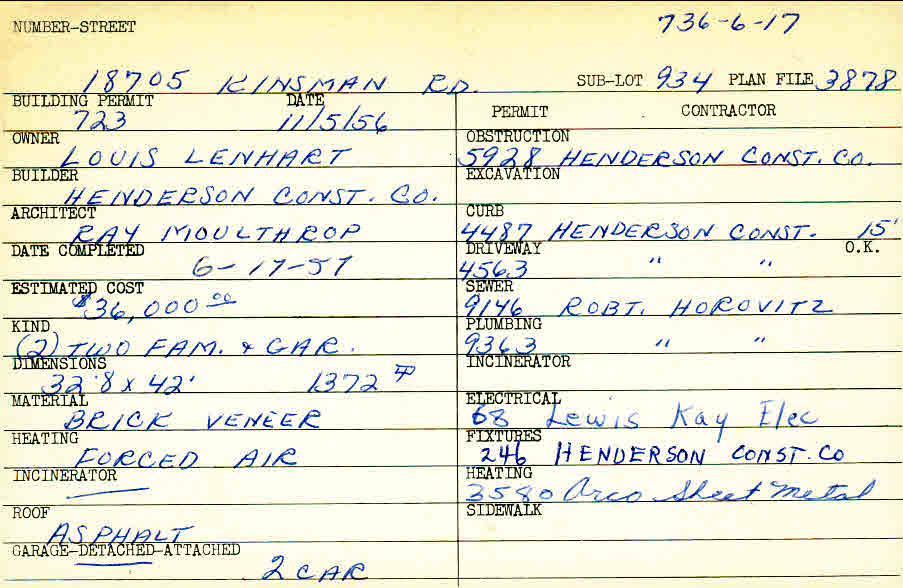 NUMBER-STREET 736-6-17
18705 KINSMAN RD. SUB-LOT 934 PLAN FILE 3878
BUILDING PERMIT DATE PERMIT CONTRACTOR
723 11/5/56
OWNER OBSTRUCTION
LOUIS LENHART 5928 HENDERSON CONST. CO.
BUILDER EXCAVATION
HENDERSON CONST. CO.
ARCHITECT CURB
RAY MOULTHROP 4487 HENDERSON CONST. 15'
DATE COMPLETED DRIVEWAY O.K.
6-17-57 4563 " "
ESTIMATED COST SEWER
$36,000.00 9146 ROBT. HOROVITZ
KIND PLUMBING
(2) TWO FAM. & GAR. 9363 " "
DIMENSIONS INCINERATOR
32'8 x 42' 1372
MATERIAL ELECTRICAL
BRICK VENEER 68 Lewis Kay Elec
HEATING FIXTURES
FORCED AIR 246 HENDERSON CONST. CO
INCINERATOR HEATING
3580 Arco Sheet Metal
ROOF SIDEWALK
ASPHALT
GARAGE-DETACHED-ATTACHED
2 CAR